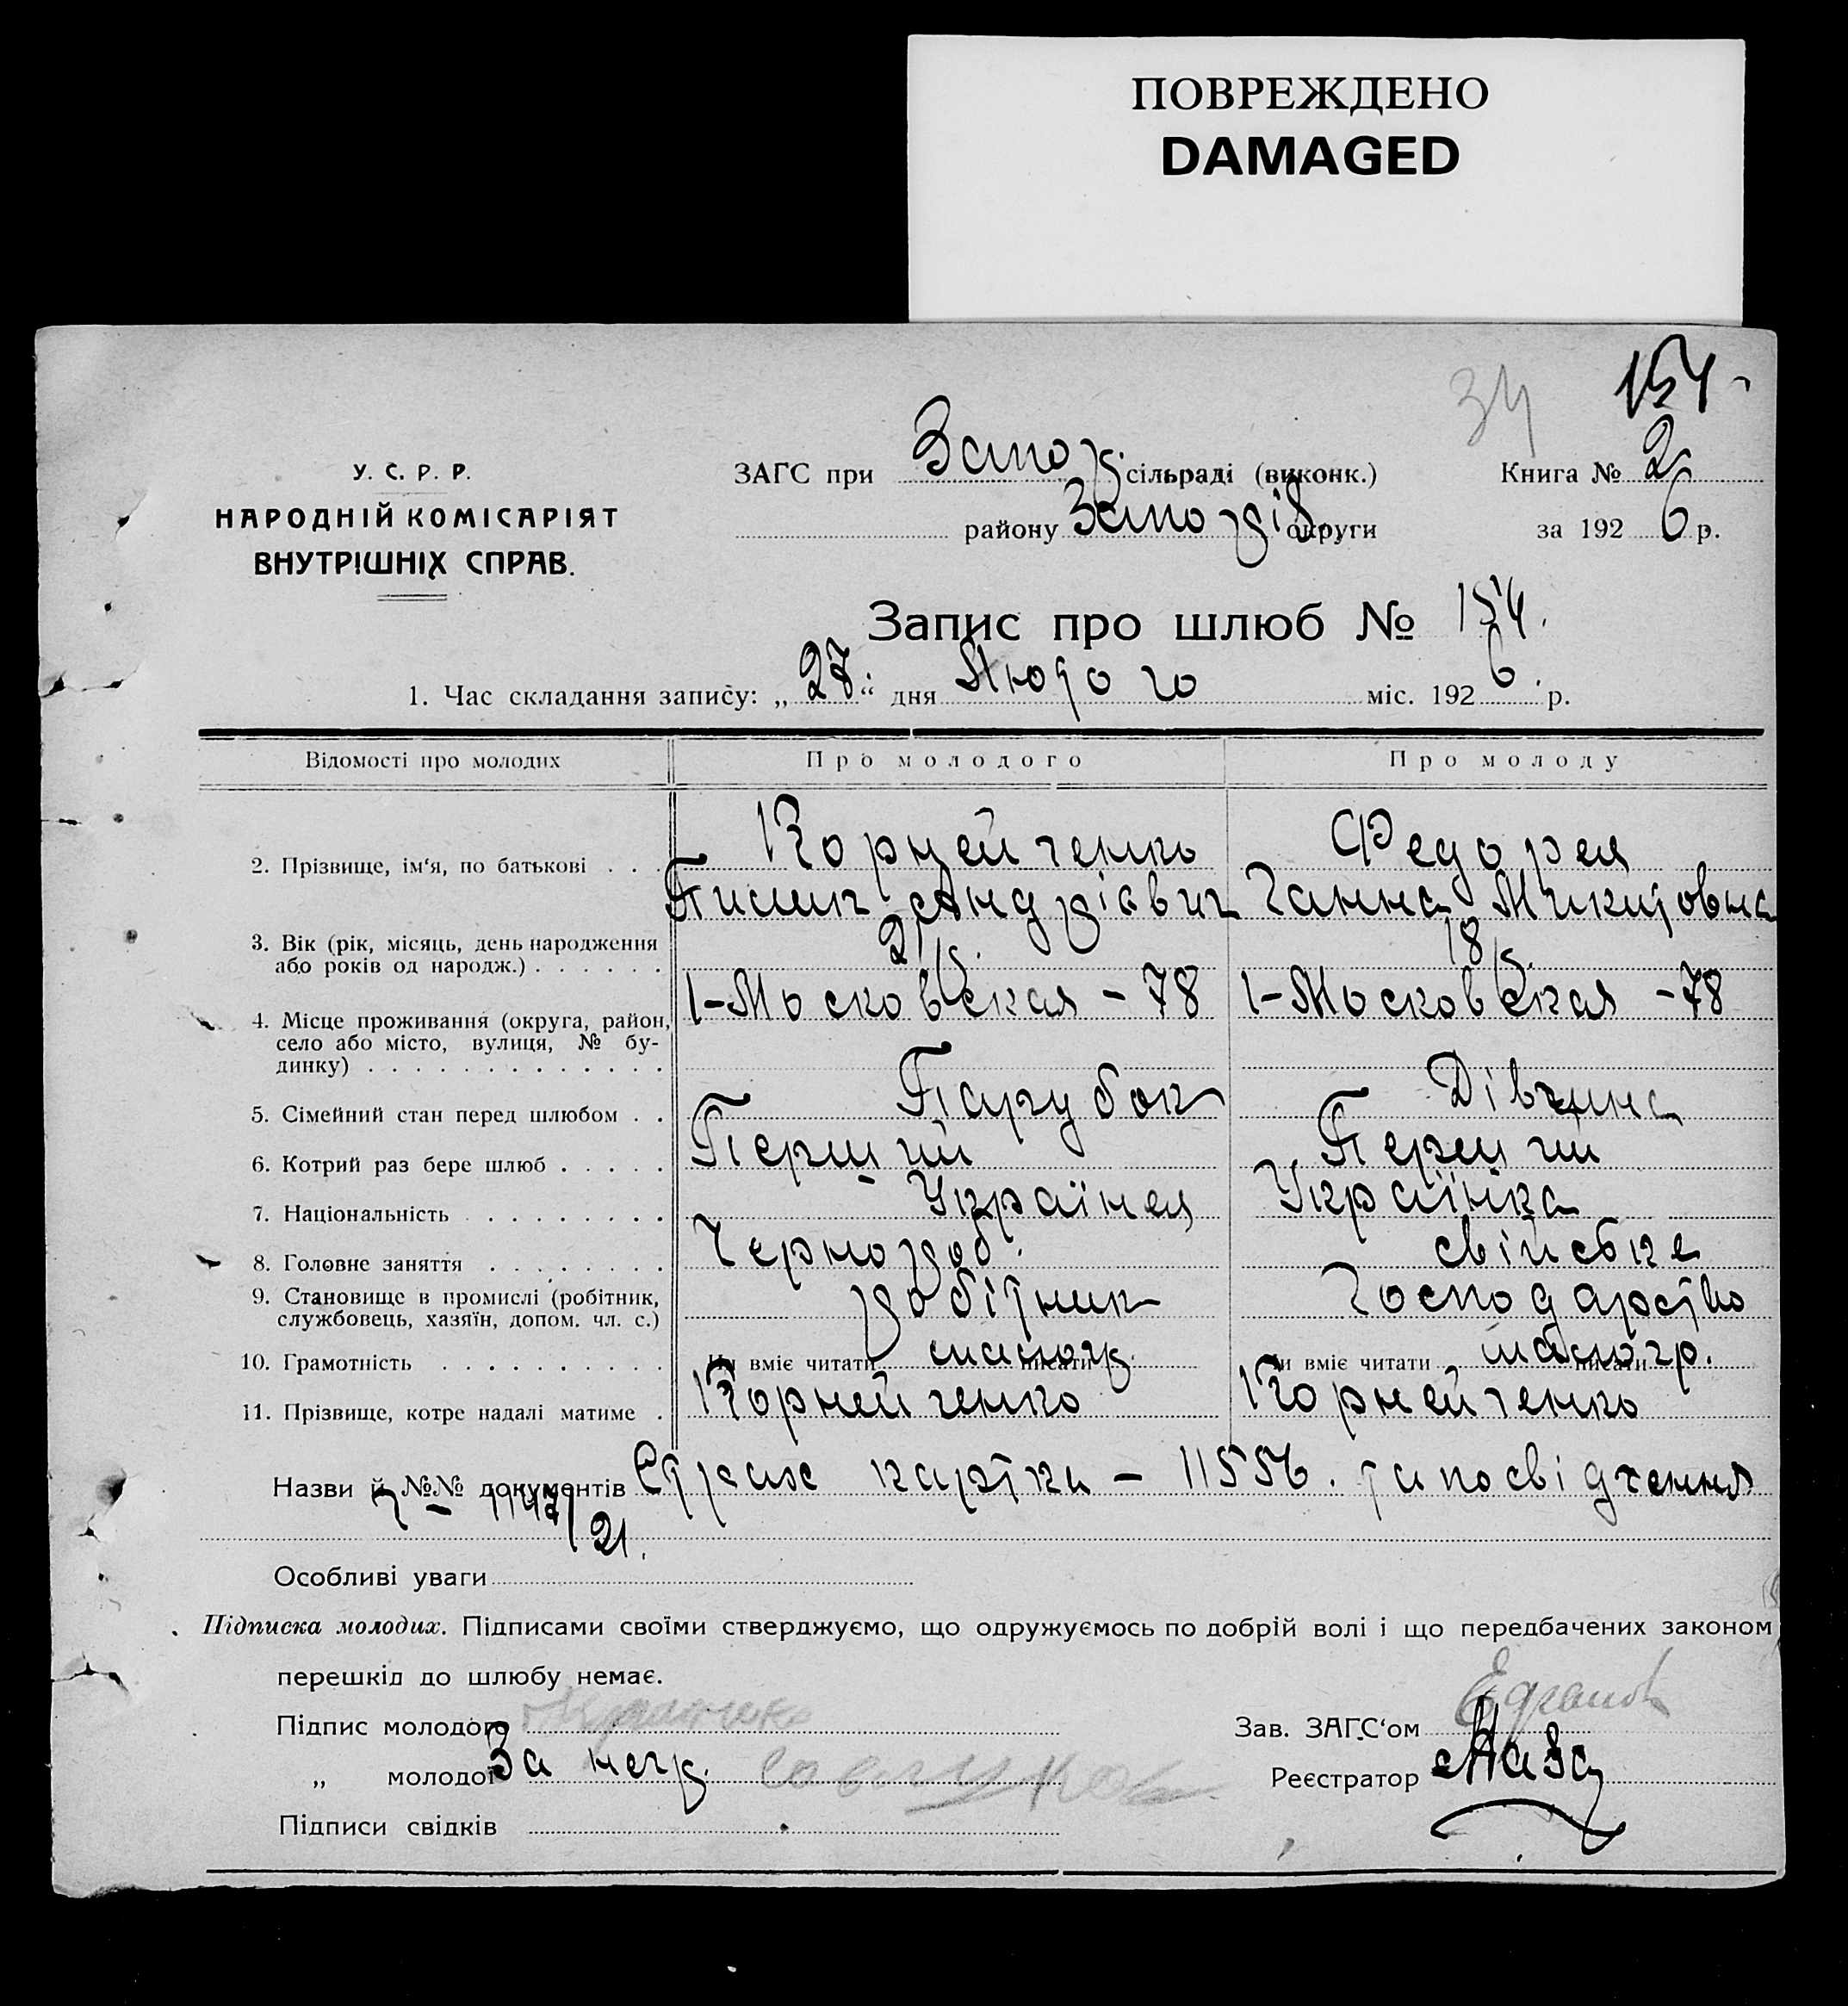 ПОВРЕЖДЕНО
DAMAGED
34 154
У. С. Р. Р.
НАРОДНІЙ КОМІСАРІЯТ
ВНУТРІШНІХ СПРАВ.
ЗАГС при Запор. сільраді (виконк.)
району Запорзів округи
Книга № 2
за 1926 р.
Запис про шлюб № 154.
1. Час складання запису: „27“ дня Лютого міс. 1926 р.
Відомості про молодих Про молодого Про молоду
2. Прізвище, ім‘я, по батькові . . . Корнейченко Федорец
Пилип Андріевич Ганна Микитовна
3. Вік (рік, місяць, день народження або років од народж.) . . . . . . 21 р. 18 р.
4. Місце проживання (округа, район, село або місто, вулиця, № будинку) . . . . . . . . . . . . . 1-Московская - 78 1-Московская - 78
5. Сімейний стан перед шлюбом . . Парубок Дівчина
6. Котрий раз бере шлюб . . . . . Перший Перший
7. Національність . . . . . . . . Українец Українка
8. Головне заняття . . . . . . . . Чернороб. свійське
9. Становище в промислі (робітник, службовець, хазяїн, допом. чл. с.) робітник Господарство
10. Грамотність . . . . . . . . . . Чи вміє читати писати малогр. Чи вміє читати писати малогр.
11. Прізвище, котре надалі матиме . Корнейченко Корнейченко
Назви й №№ документів Страх картки - 11556. та посвідчення
1147/21.
Особливі уваги
Підписка молодих. Підписами своїми стверджуємо, що одружуємось по добрій волі і що передбачених законом
перешкід до шлюбу немає.
Підпис молодого
Зав. ЗАГС‘ом
„ молодої За негр.
Реєстратор
Підписи свідків